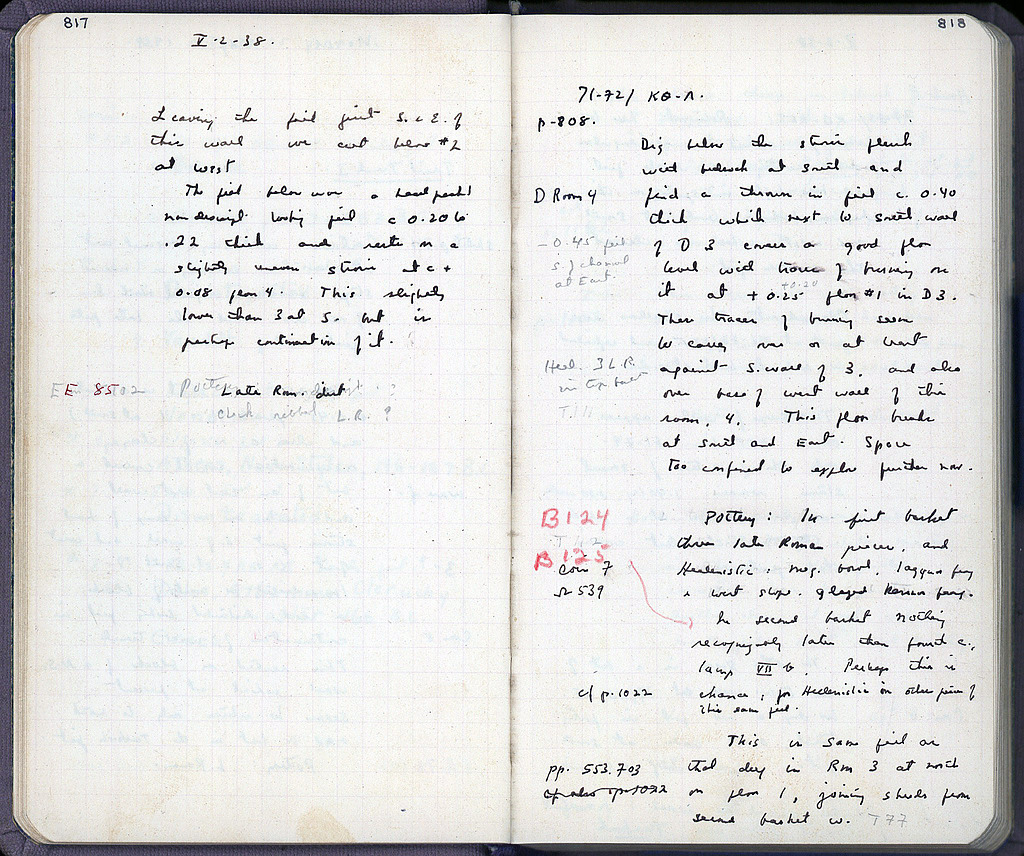 817
V-2-38.
Leaving the fill just S. & E. of
this wall we cut below #2
at west
The fill below was a hard packed
nondescript looking fill c 0.20 to
22 thick and rests on a
slightly uneven strosis at c +
0.08 floor 4. This slightly
lower than 3 at S. but is
perhaps continuation of it.
EE 8502
Late Rom. dist
L.R. ?
818
71-72/ ΚΘ-Λ.
p-808.
Dig below the strosis flush
with bedrock at south and
D Room 4 find a thrown in fill c. 0.40
thick which next to south wall
-0.45 fill
S. of channel
at East
of D 3 covers a good floor
level with traces of burning on
it at +0.25 floor #1 in D3.
+0.20
These traces of burning seem
to carry over or at want
Hell. 3 L.R.
in top basket
against S. wall of 3. and also
over base of west wall of this
T 111
room, 4. This floor breaks
at South and East. Space
too confined to explore further now.
B124
Pottery: In first basket
three late Roman pieces, and
B125
Coin 7
Hellenistic: meg. bowl, lagynos frag
Ω 539
i west slope. glazed Roman frag.
In second basket nothing
recognizably later than fourth c.,
lamp VII b. Perhaps this is
c/ p. 1022
chance; for Hellenistic in other piece of
this same fill.
This is same fill as
pp. 553.703
that dug in Rm 3 at north
cf also p. 1022
on floor 1, joining sherds from
second basket w. T77